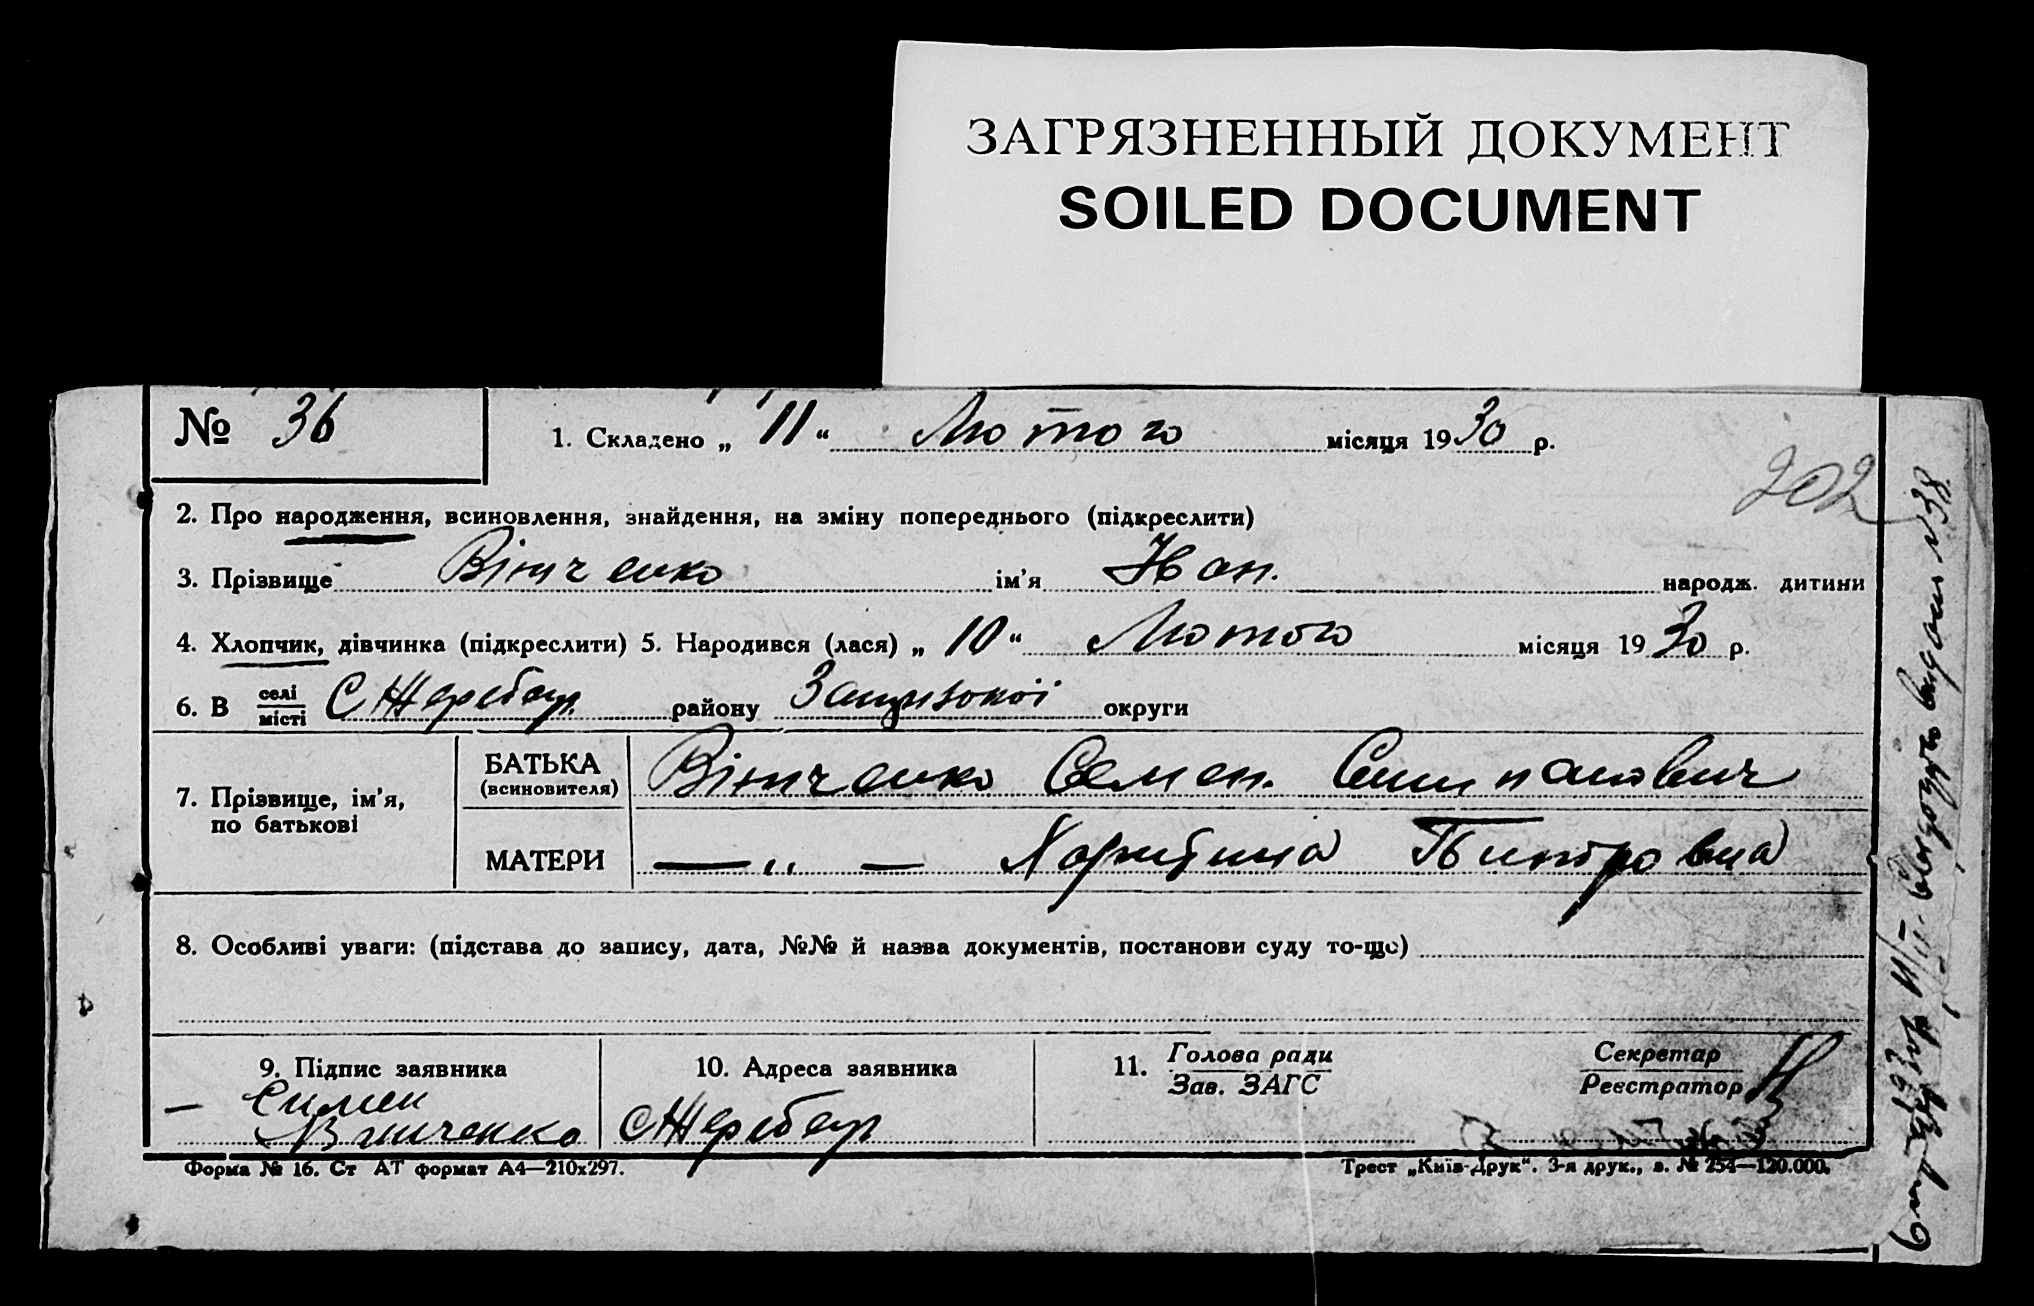 ЗАГРЯЗНЕННЫЙ ДОКУМЕНТ
SOILED DOCUMENT
№ 36
1. Складено „ 11 “ Лютого місяця 1930 р.
202
2. Про народження, всиновлення, знайдення, на зміну попереднього (підкреслити)
3. Прізвище Вітченко ім'я Іван. народж. дитини
4. Хлопчик, дівчинка (підкреслити) 5. Народився (лася) „ 10 “ Лютого місяця 1930 р.
6. В селі/місті С Жеребец району Запризької округи
7. Прізвище, ім'я, по батькові
БАТЬКА (всиновителя) Вітченко Семен.
МАТЕРИ — „ —
8. Особливі уваги: (підстава до запису, дата, №№ й назва документів, постанови суду то-що)
9. Підпис заявника
Симен
Вітченко
10. Адреса заявника
С Жеребец
11. Голова ради
Зав. ЗАГС
Секретар
Реєстратор
Форма № 16. Ст АТ формат А4—210х297.
Трест „Київ-Друк“. 3-я друк., з. № 254—120.000.